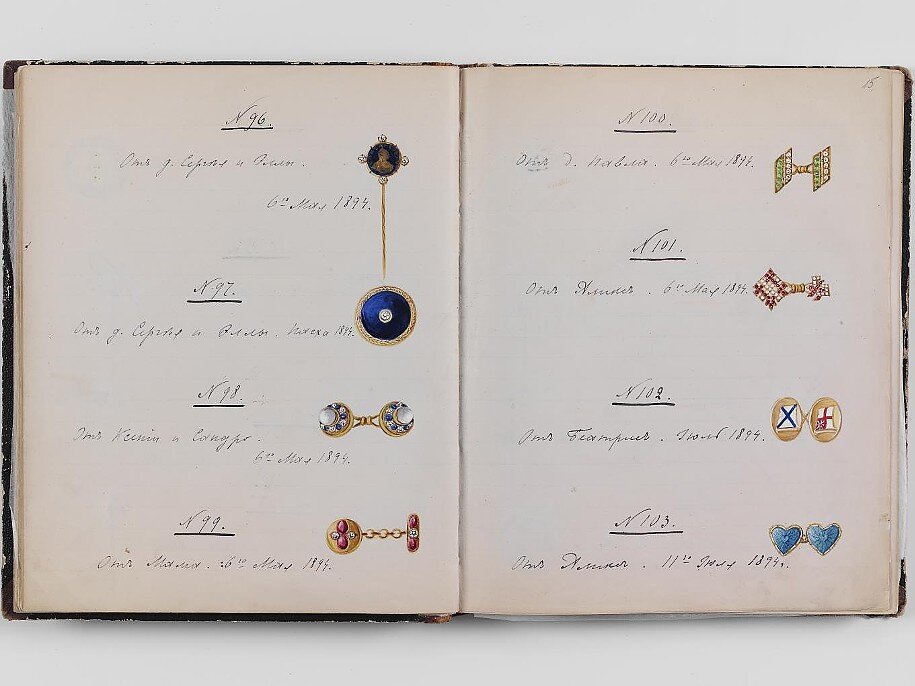 N 96.
Отъ д. Сергѣя и Эллы.
6го Мая 1894.
N 97.
Отъ д. Сергѣя и Эллы. Пасха 1894.
N 98.
Отъ Ксеніи и Сандро.
6го Мая 1894.
N 99.
Отъ Мама. 6го Мая 1894.
15
N 100.
Отъ д. Павла. 6го Мая 1894.
N 101.
Отъ Аликсъ. 6го Мая 1894.
N 102.
Отъ Беатрисъ. Іюль 1894.
N 103.
Отъ Аликсъ. 11го Іюля 1894.